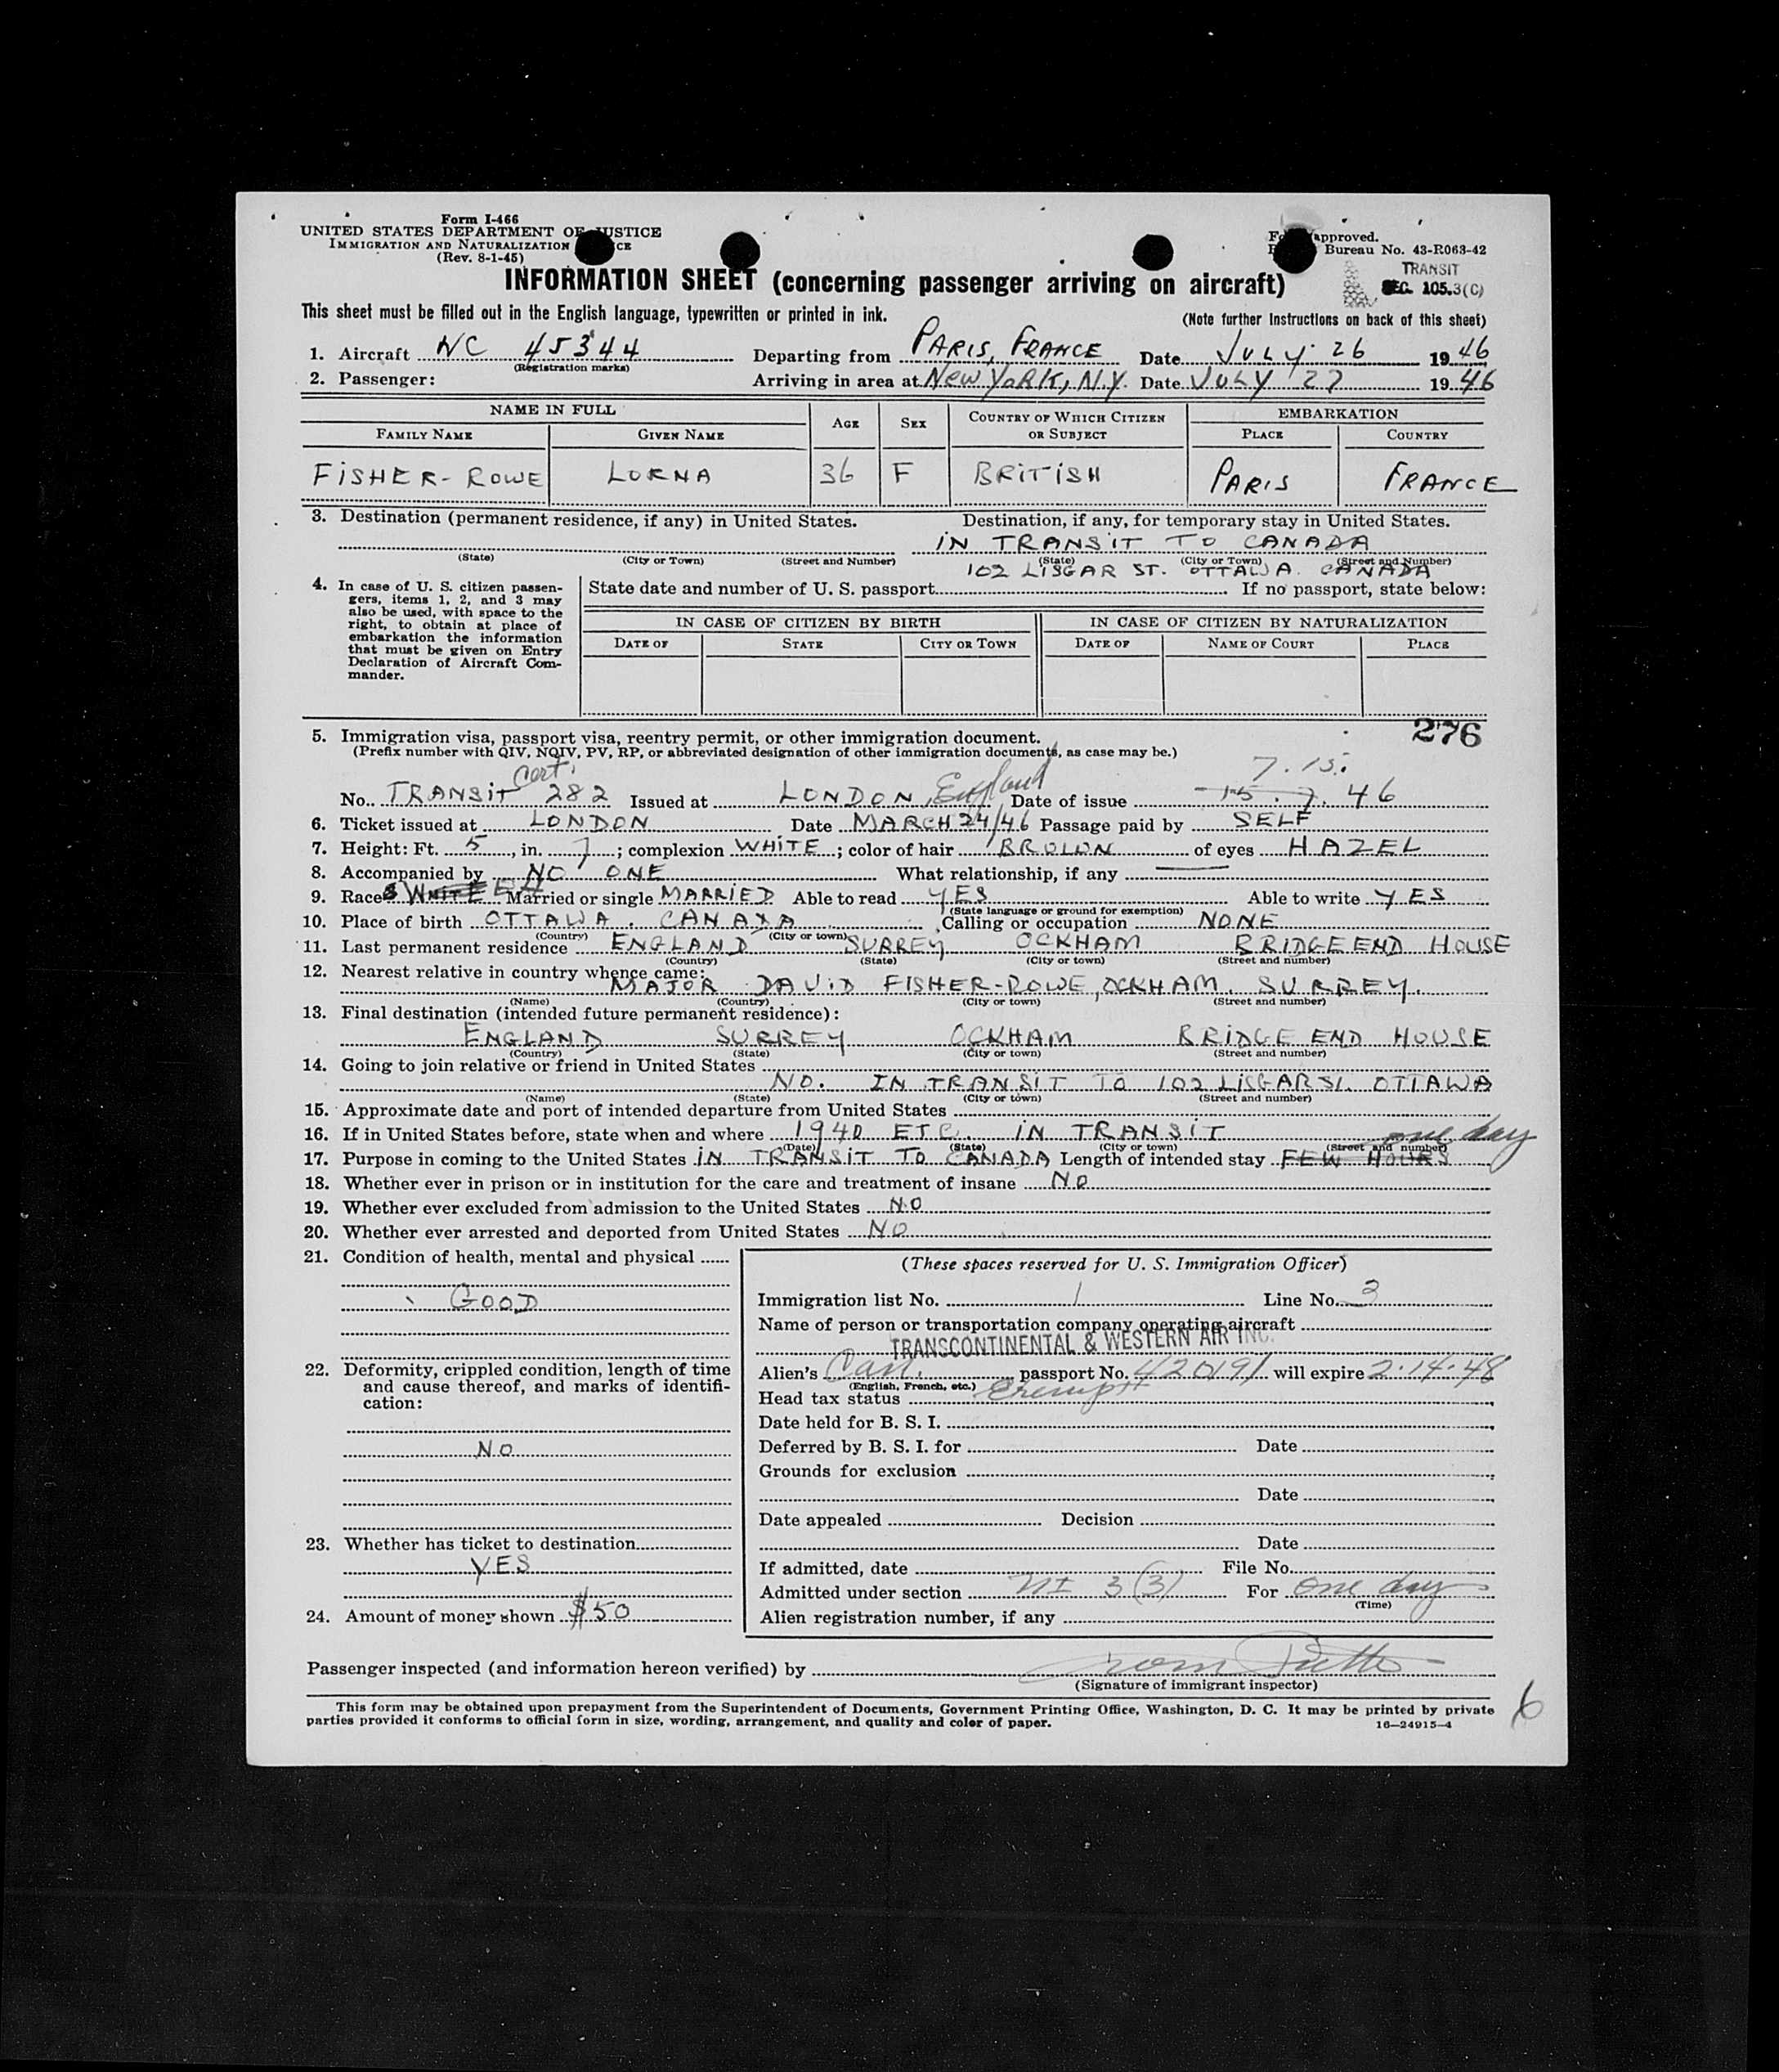 Form I-466
UNITED STATES DEPARTMENT OF JUSTICE
IMMIGRATION AND NATURALIZATION
(Rev. 8-1-45)
approved.
Bureau No. 43-R063-42
TRANSIT
SEC. 105.3(C)
INFORMATION SHEET (concerning passenger arriving on aircraft)
This sheet must be filled out in the English language, typewritten or printed in ink.
(Note further instructions on back of this sheet)
1. Aircraft NC 45344 Departing from PARIS, FRANCE Date JULY 26 1946
(Registration marks)
2. Passenger: Arriving in area at NEW YORK, N.Y. Date JULY 27 1946
NAME IN FULL AGE SEX COUNTRY OF WHICH CITIZEN OR SUBJECT EMBARKATION
FAMILY NAME GIVEN NAME PLACE COUNTRY
FISHER-ROWE LORNA 36 F BRITISH PARIS FRANCE
3. Destination (permanent residence, if any) in United States. Destination, if any, for temporary stay in United States.
IN TRANSIT TO CANADA
(State) (City or Town) (Street and Number) (State) (City or Town) (Street and Number)
102 LISGAR ST. OTTAWA CANADA
4. In case of U. S. citizen passengers, items 1, 2, and 3 may also be used, with space to the right, to obtain at place of embarkation the information that must be given on Entry Declaration of Aircraft Commander.
State date and number of U. S. passport If no passport, state below:
IN CASE OF CITIZEN BY BIRTH IN CASE OF CITIZEN BY NATURALIZATION
DATE OF STATE CITY OR TOWN DATE OF NAME OF COURT PLACE
276
5. Immigration visa, passport visa, reentry permit, or other immigration document.
(Prefix number with QIV, NQIV, PV, RP, or abbreviated designation of other immigration documents, as case may be.)
7.15.
No. TRANSIT Cert. 282 Issued at LONDON, England Date of issue 15.7.46
6. Ticket issued at LONDON Date MARCH 24/46 Passage paid by SELF
7. Height: Ft. 5, in. 7; complexion WHITE; color of hair BROWN of eyes HAZEL
8. Accompanied by NO ONE What relationship, if any
9. Race WHITE Married or single MARRIED Able to read YES Able to write YES
(State language or ground for exemption)
10. Place of birth OTTAWA. CANADA Calling or occupation NONE
(Country) (City or town)
11. Last permanent residence ENGLAND SURREY OCKHAM BRIDGE END HOUSE
(Country) (State) (City or town) (Street and number)
12. Nearest relative in country whence came:
MAJOR DAVID FISHER-ROWE, OCKHAM. SURREY.
(Name) (Country) (City or town) (Street and number)
13. Final destination (intended future permanent residence):
ENGLAND SURREY OCKHAM BRIDGE END HOUSE
(Country) (State) (City or town) (Street and number)
14. Going to join relative or friend in United States
NO. IN TRANSIT TO 102 LISGAR ST. OTTAWA
(Name) (State) (City or town) (Street and number)
15. Approximate date and port of intended departure from United States
16. If in United States before, state when and where 1940 ETC. IN TRANSIT
(Date) (State) (City or town) (Street and number)
one day
17. Purpose in coming to the United States IN TRANSIT TO CANADA Length of intended stay FEW HOURS
18. Whether ever in prison or in institution for the care and treatment of insane NO
19. Whether ever excluded from admission to the United States NO
20. Whether ever arrested and deported from United States NO
21. Condition of health, mental and physical
GOOD
22. Deformity, crippled condition, length of time and cause thereof, and marks of identification:
NO
23. Whether has ticket to destination
YES
24. Amount of money shown $50
(These spaces reserved for U. S. Immigration Officer)
Immigration list No. 1 Line No. 3
Name of person or transportation company operating aircraft
TRANSCONTINENTAL & WESTERN AIR INC.
Alien's Can. passport No. 420191 will expire 2.14.48
(English, French, etc.)
Head tax status Exempt
Date held for B. S. I.
Deferred by B. S. I. for Date
Grounds for exclusion
Date
Date appealed Decision
Date
If admitted, date File No.
Admitted under section 3(3) For one day
(Time)
Alien registration number, if any
Passenger inspected (and information hereon verified) by
(Signature of immigrant inspector)
This form may be obtained upon prepayment from the Superintendent of Documents, Government Printing Office, Washington, D. C. It may be printed by private
parties provided it conforms to official form in size, wording, arrangement, and quality and color of paper.
16—24915-4
6